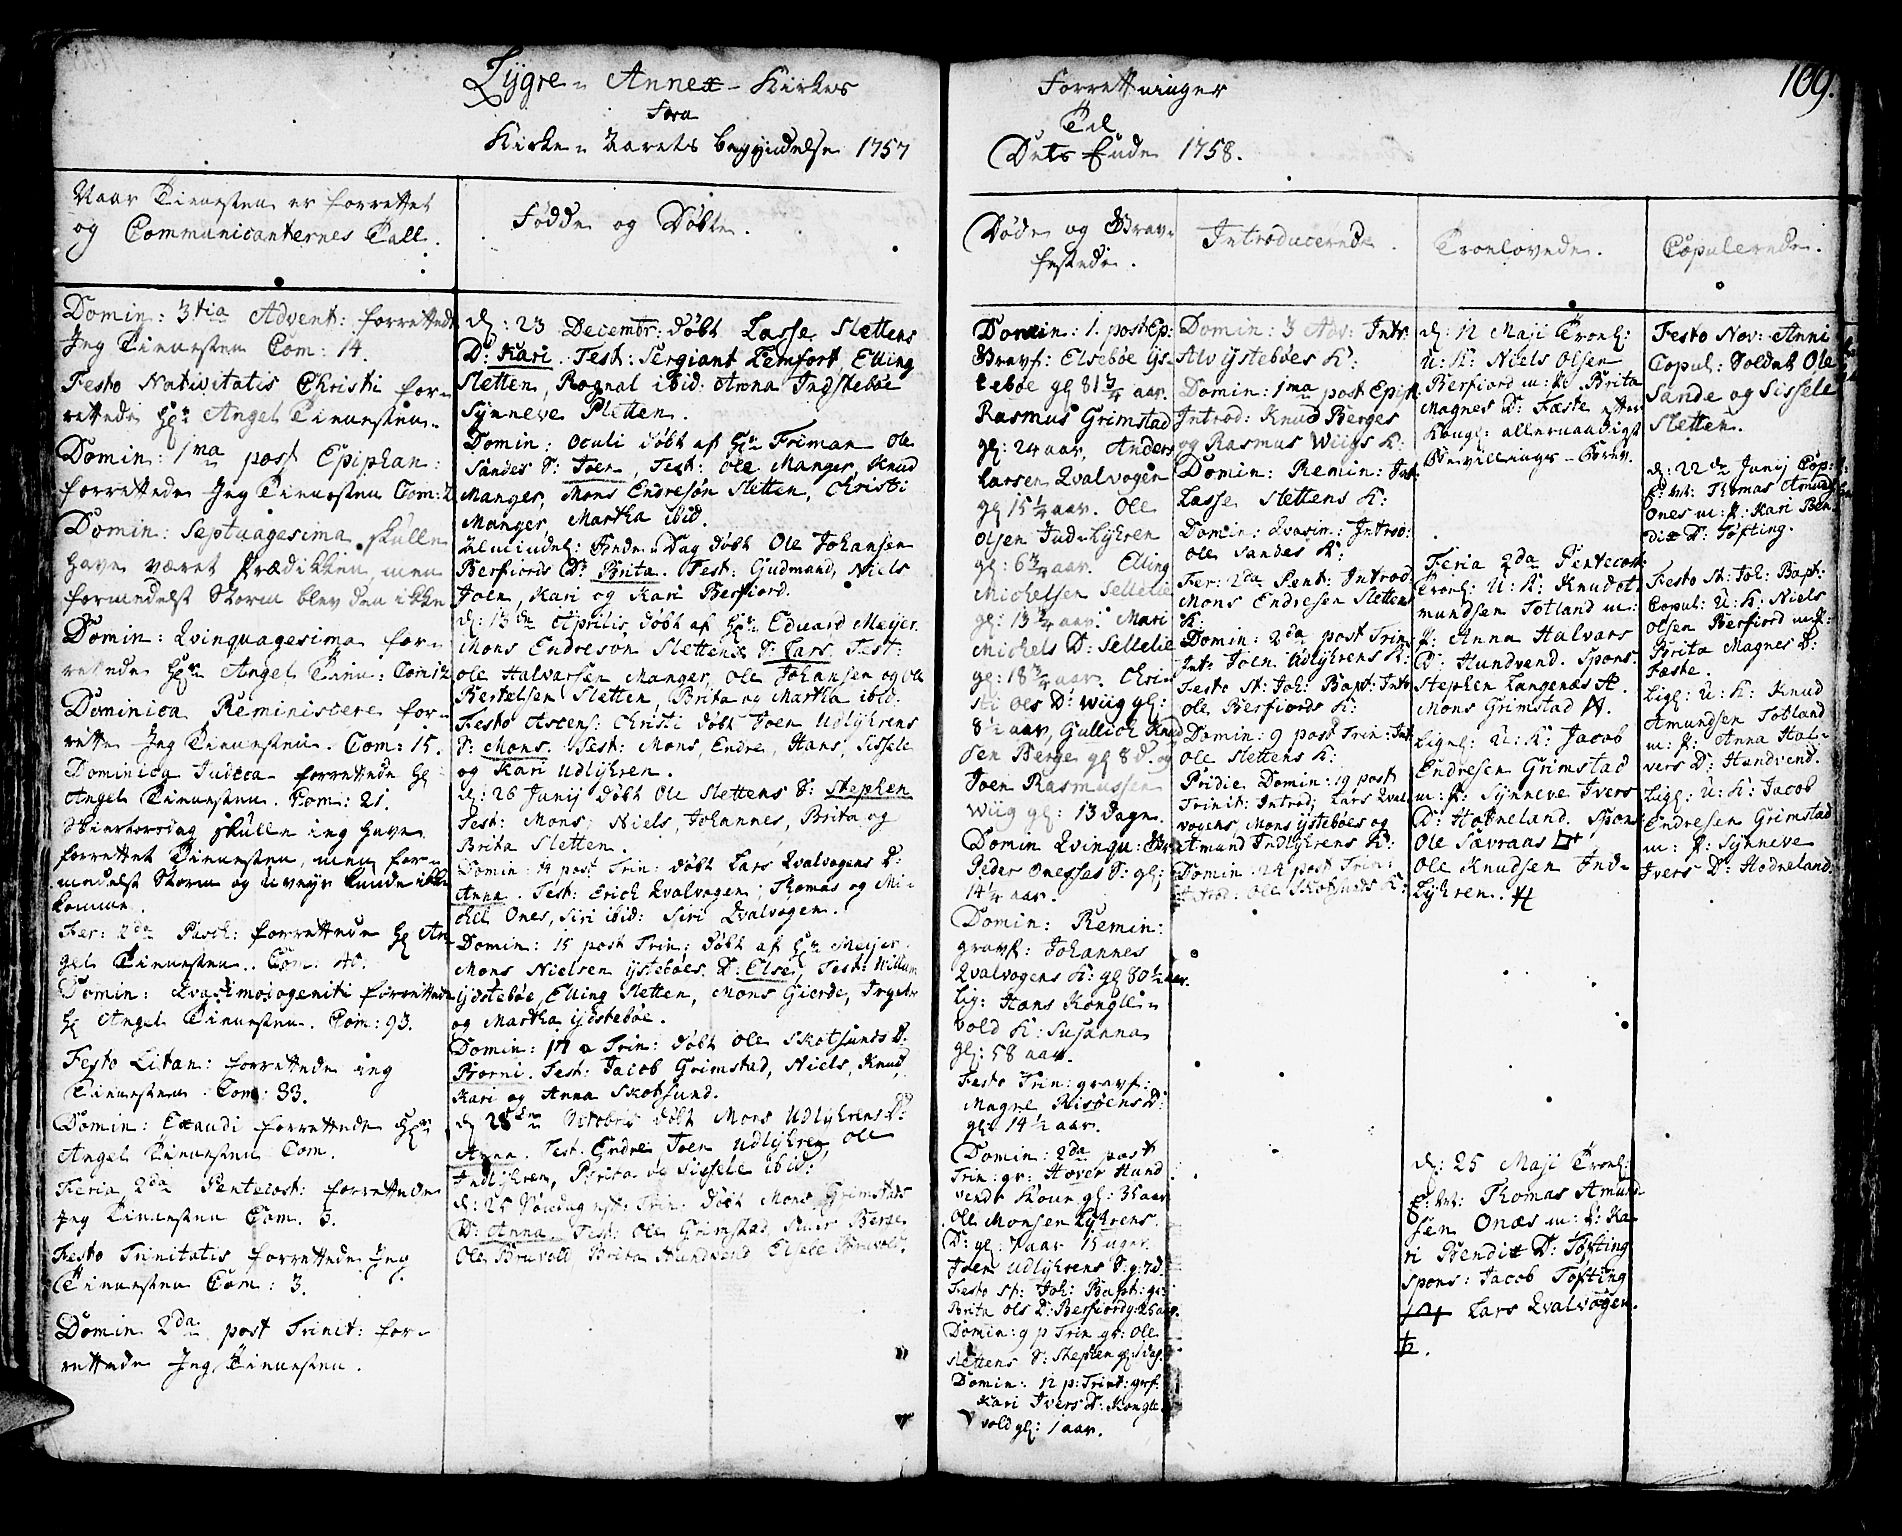 Lÿgre - Annex - Kirkes
Fra
Kirke - Aarets begyndelse 1757
Naar Tienesten er forrettet
og Communicanternes Tall.
Fødde og Døbte.
Domin: 3tia Advent: forrettede
Jeg Tienesten Com: 14.
Festo Nativitatis Christi for-
rettede Hr Angel Tienesten.
Domin: 1ma post Epiphan:
forrettede Jeg Tienesten Com:
Domin: Septuagesima skulle
have været Prædikken, men
formedelst Storm blev den ikke
Domin: Qvinquagesima for-
rettede Hr Angel Tien: Com:
Dominica Reministere for-
rette Jeg Tienesten. Com: 15.
Dominica Judica forrettede Hr
Angel Tienesten. Com: 21.
Skiertorsdag skulle jeg have
forrettet Tienesten, men for-
medelst Storm og uveyr kunde ikke
komme.
Fer: 2da Pasch: forrettede Hr An-
gel Tienesten. Com: 40.
Domin: Qvasimodogeniti forrettede
Hr Angel Tienesten. Com: 93.
Festo Litan: forrettede jeg
Tienesten. Com: 33.
Domin: Exaudi forrettede Hr
Angel Tienesten Com.
Feria 2da Pentecost: forrettede
Jeg Tienesten Com. 3.
Festo Trinitatis forrettede Jeg
Tienesten Com: 3.
Domin 2da post Trinit: for-
rettede Jeg Tienesten.
d: 23 Decembr: døbt Lasse Slettens
D: Kari. Test: Sergiant Lemfort Elling
Sletten, Rognal ibid: Anna Indstebøe
Synneve Sletten.
Domin: Oculi døbt af Hr Friman Ole
Sandes S: Joen, Test: Ole Manger, Knud
Manger, Mons Endresøn Sletten, Christi
Manger, Martha ibid.
Almindel: Bede-Dag døbt Ole Johansen
Berfiords D: Brita. Test: Gudmand, Niels
Joen, Kari og Kari Berfiord.
d: 13de Aprilis, døbt af Hr Eduard Meijer
Mons Endreson Slettens S: Lars. Test:
Ole Halvarsen Manger, Ole Johansen og Ole
Bertelsen Sletten, Brita og Martha ibid.
Festo Ascens: Christi døbt Joen Udlÿhrens
S: Mons. Test: Mons, Endre, Hans, Sissele
og Kari Udlÿhren.
d: 26 Junij døbt Ole Slettens S: Stephen
Test: Mons, Niels, Johannes, Brita og
Brita Sletten.
Domin: 4 post Trin: døbt Lars Qvalvogens D:
Anna. Test: Erich Qvalvogen, Thomas og Mi-
chel Ones, Siri ibid: Siri Qvalvogen.
Domin: 15 post Trin: døbt af Hr Meijer
Mons Nielsen ÿstebøes D: Else, Test: Willum
ÿdstebøe, Elling Sletten, Mons Gierde,
og Martha ÿdstebøe.
Domin: 17 a Trin: døbt Ole Skotsunds D:
Biørni. Test: Jacob Grimstad, Niels, Knud,
Kari og Anna Skotsund.
d: 28de Octobris døbt Mons Udlÿhrens D:
Anna. Test: Endre Joen Udlÿhren, Ole
Indlÿhren, Brita og Sissele ibid:
d: 25 Søndag Trin: døbt Mons Grimstads
D: Anna. Test: Ole Grimstad, Siver Berge
Ole Bruvoll Brita Hundvend Sissele Bruvoll.
Forrettninger
Til
Dets Ende 1758.
109.
Døde og Grav-
festede.
Introducerede.
Troelovede.
Copulerede.
Domin: 1. post Ep:
Gravf: Elsebøe ÿs-
tebøe gl 81 3/4 aar.
Rasmus Grimstad
gl: 24 aar, Anders
Larsen Qvalvogen
gl 15 1/4 aar. Ole
Olsen Ind-Lÿhren
gl: 6 3/4 aar. Elling
Michelsen Sellelie
gl: 13 1/4 aar. Mari
Michels D: Sellelie
gl: 18 3/4 aar. Chri-
sti Ols D: Wiig gl:
8 1/2 aar, Gullich Knud
sen Berge gl 8 d. og
Joen Rasmussen
Wiig gl: 13 dage.
Domin Qvinqu: Gr:
Peder Onesses S: gl:
14 1/4 aar.
Domin: Remin:
gravf: Johannes
Qvalvogens K: gl 80 1/2 aar.
Lig: Hans Kongle-
vold K: Susanna
gl: 58 aar.
Festo Trin: gravf:
Magne Risøens D:
gl: 14 1/2 aar.
Domin: 2da post
Trin: gr: Haver Hund
vends Kone gl: 35 aar
Ole Monsen Lÿhrens
D: gl: 7 aar 15 uger.
Joen Udlÿhrens S: g: 7d.
Festo St: Joh: Bapt: gr:
Brita Ols D: Berfiord
Domin: 9 p Trin gr: Ole
Slettens S: Stephen gl
Domin: 12 p: Trint: grf:
Kari Ivers D: Kongle-
vold gl: 1 aar.
Domin: 3 Adv: Intr:
Alv ÿstebøes K:
Domin: 1ma post Epip:
Introd: Knud Berges
og Rasmus Wiigs K:
Domin: Remin: Int:
Lasse Slettens K:
Domin: Qvasim: Introd:
Ole Sandes K:
Fer: 2da Pent: Introd:
Mons Endresen Slettens
K:
Domin: 2da post Trin:
Int: Joen Udlÿhrens K:
Festo St: Joh: Bapt: Intr
Ole Berfiords K:
Domin: 9 post Trin: Int
Ole Slettens K:
Pridie Domin: 19 post
Trinit: Introd: Lars Qval
vogens, Mons ÿstebøes og
Amund Indlÿhrens K:
Domin: 24 post Trin:
Introd: Ole Skotsunds K:
d: 12 Maji Troel:
U: K: Niels Olsen
Berfiord m: P: Brita
Magnes D: Fæste efter
Kongl: allernaadigst
Bevillings-Brev.
Feria 2da Pentecost:
Troel: U: K: Knud A-
mundsen Totland m:
P: Anna Halvars
D: Hundvend. Spons:
Stephen Langenæs
Mons Grimstad
Ligel: U: K: Jacob
Endresen Grimstad
m: P: Synneve Ivers
D: Hodneland. Spon:
Ole Sævraas
Ole Knudsen Ind-
Lÿhren.
d: 25 Maji Troel:
E: M: Thomas Amund
sen Onæs m: P: Ka-
ri Bendix D: Tøfting
Spons: Jacob Tøfting
Lars Qvalvogen.
Festo Nov: Anni
Copul: Soldat Ole
Sande og Sissele
Sletten.
d: 22de Junij Cop:
E: M: Thomas Amund
Ones m: P: Kari Ben
dix D: Tøfting.
Festo St: Joh: Bapt:
Copul: U: K: Niels
Olsen Berfiord m: P:
Brita Magnes D:
Fæste.
Ligl: U: K: Knud
Amundsen Totland
m: P: Anna Hal-
vers D: Hundvend.
Ligl: U: K: Jacob
Endresen Grimstad
m: P: Synneve
Ivers D: Hodneland.